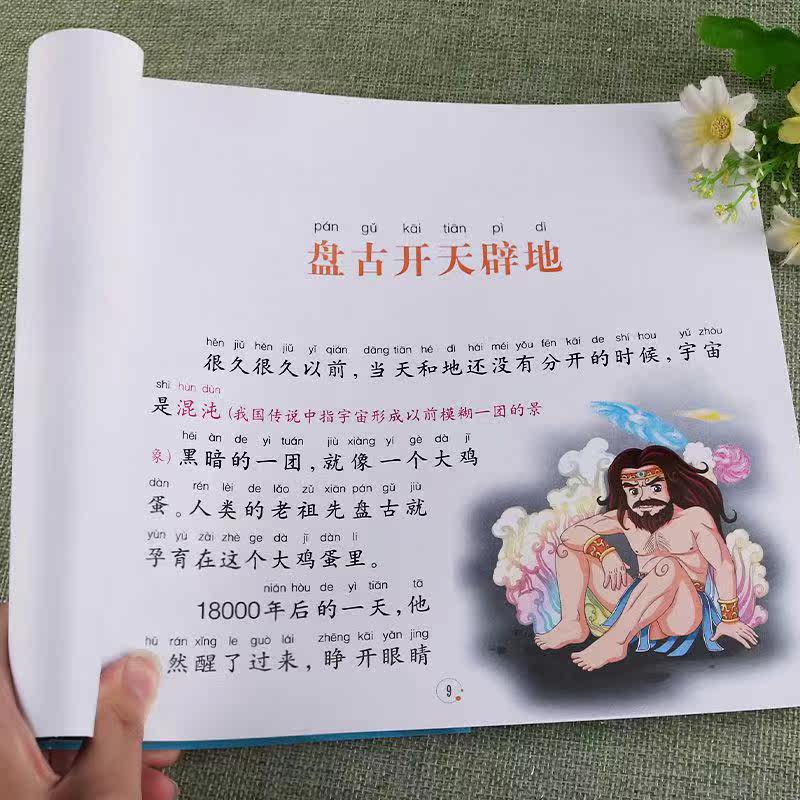 pán gǔ kāi tiān pì dì
盘古开天辟地
hěn jiǔ hěn jiǔ yǐ qián dāng tiān hé dì hái méi yǒu fēn kāi de shí hou yǔ zhòu
很久很久以前，当天和地还没有分开的时候，宇宙
shì hùn dùn
是混沌(我国传说中指宇宙形成以前模糊一团的景
hēi àn de yì tuán jiù xiàng yí gè dà jī
象)黑暗的一团，就像一个大鸡
dàn rén lèi de lǎo zǔ xiān pán gǔ jiù
蛋。人类的老祖先盘古就
yùn yù zài zhè ge dà jī dàn lǐ
孕育在这个大鸡蛋里。
nián hòu de yì tiān tā
18000年后的一天，他
hū rán xǐng le guò lái zhēng kāi yǎn jing
然醒了过来，睁开眼睛
9